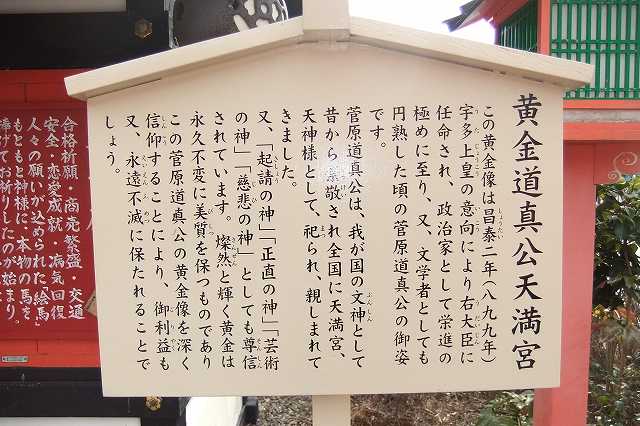 黄金道真公天満宮
この黄金像は昌泰二年(八九九年)
宇多上皇の意向により右大臣に
任命され、政治家として栄進の
極めに至り、又、文学者としても
円熟した頃の菅原道真公の御姿
です。
菅原道真公は、我が国の文神として
昔から崇敬され全国に天満宮、
天神様として、祀られ、親しまれて
きました。
又、「起請の神」「正直の神」「芸術
の神」「慈悲の神」としても尊信
されています。燦然と輝く黄金は
永久不変に美質を保つものであり
この菅原道真公の黄金像を深く
信仰することにより、御利益も
又、永遠不滅に保たれることで
しょう。
合格祈願・商売繁盛・交通
安全・恋愛成就・病気回復
人々の願いが込められた「絵馬」
もともと神様に、本物の馬を
捧げてお祈りしたのが始まり。